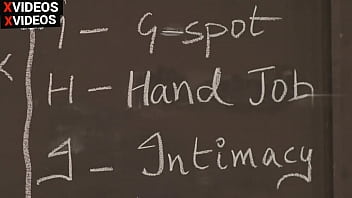 XVIDEOS
XVIDEOS
G-spot
H - Hand Job
I - Intimacy